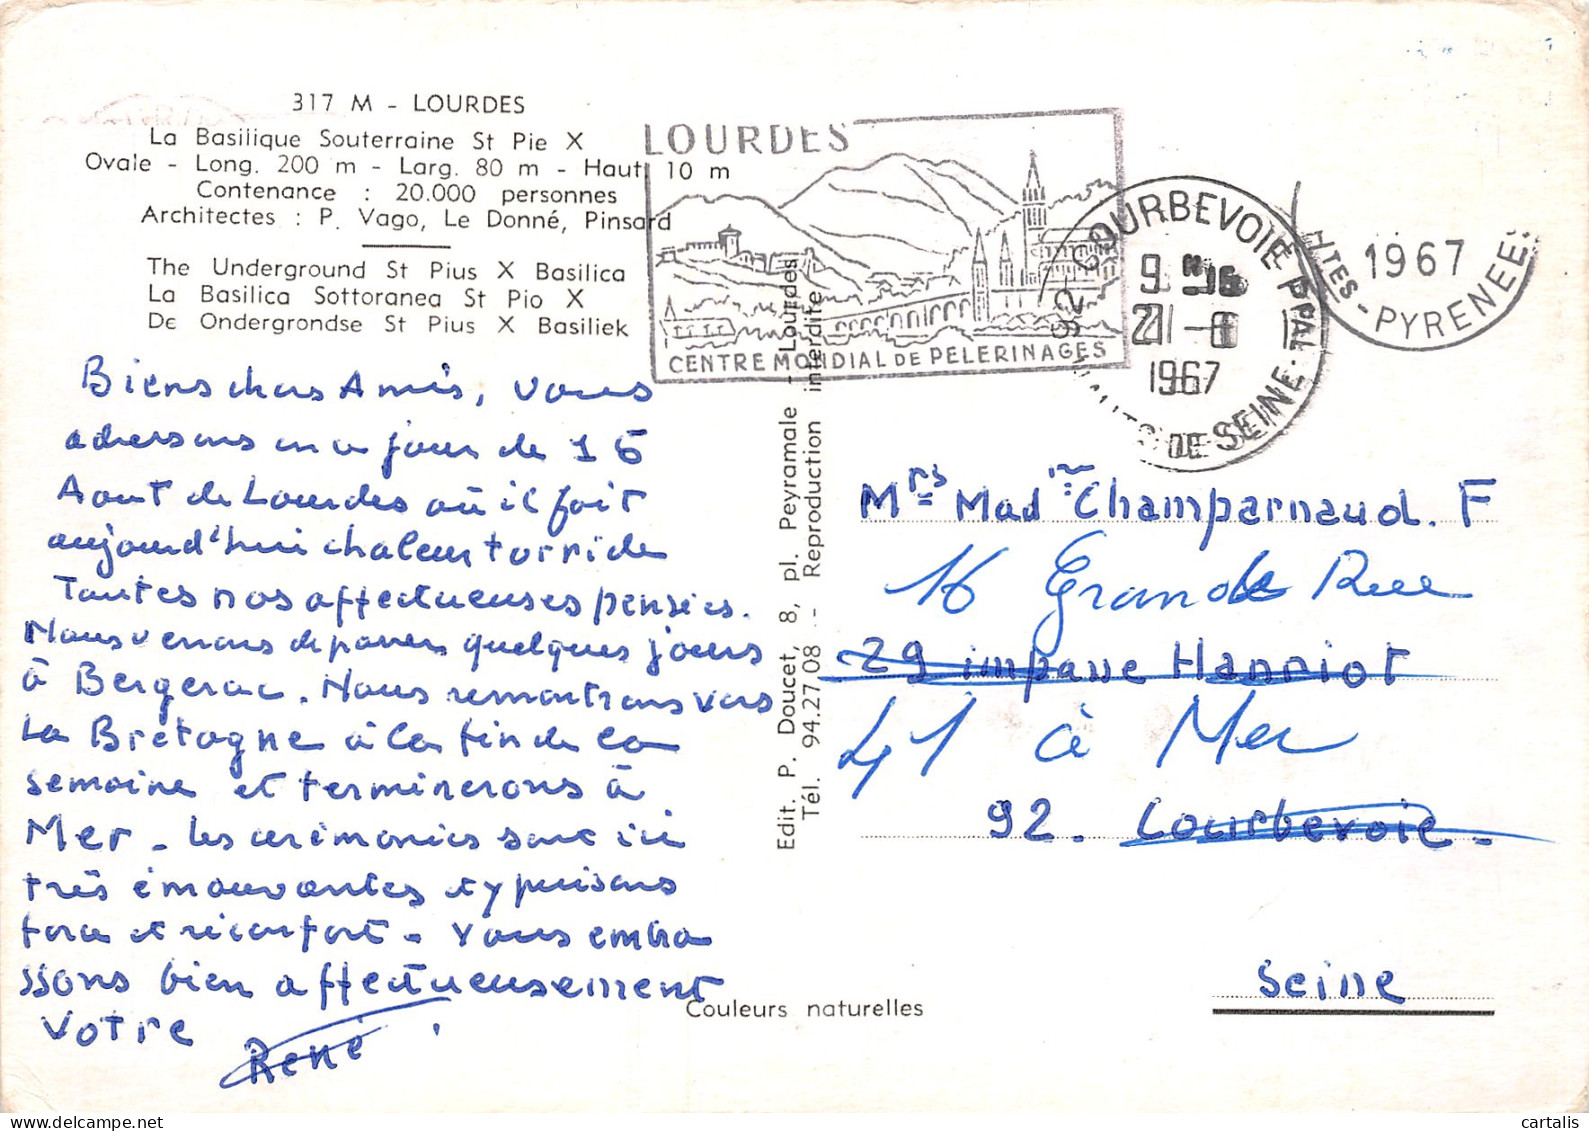 317 M - LOURDES
La Basilique Souterraine St Pie X
Ovale - Long. 200 m - Larg. 80 m - Haut. 10 m
Contenance : 20.000 personnes
Architectes : P. Vago, Le Donné, Pinsard
The Underground St Pius X Basilica
La Basilica Sottoranea St Pio X
De Ondergrondse St Pius X Basiliek
Biens chers Amis, vous
adressons en ce jour de 15
Aout de Lourdes où il fait
aujourd'hui chaleur torride
Toutes nos affectueuses pensées.
Nous venons de passer quelques jours
à Bergerac. Nous remontrons vers
La Bretagne à la fin de la
semaine et terminerons à
Mer - Les cérémonies sont ici
très émouvantes et y puisons
force et réconfort - Vous embra
ssons bien affectueusement
Votre
René
LOURDES
CENTRE MONDIAL DE PELERINAGES
92 COURBEVOIE PPAL
9 H
21 - 8
1967
HAUTS DE SEINE
1967
HTES - PYRENEES
Edit. P. Doucet, 8, pl. Peyramale - Lourdes
Tél. 94.27 08 - Reproduction interdite
Mrs Mad me Champarnaud. F
16 Grande Rue
29 impasse Hanriot
41 à Mer
92. Courbevoie -
Seine
Couleurs naturelles
cartalis